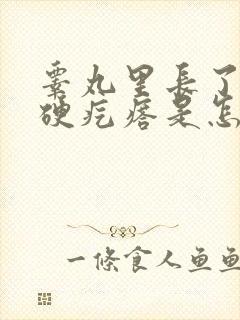 睾丸里長了
硬疙瘩是怎
一條食人魚魚